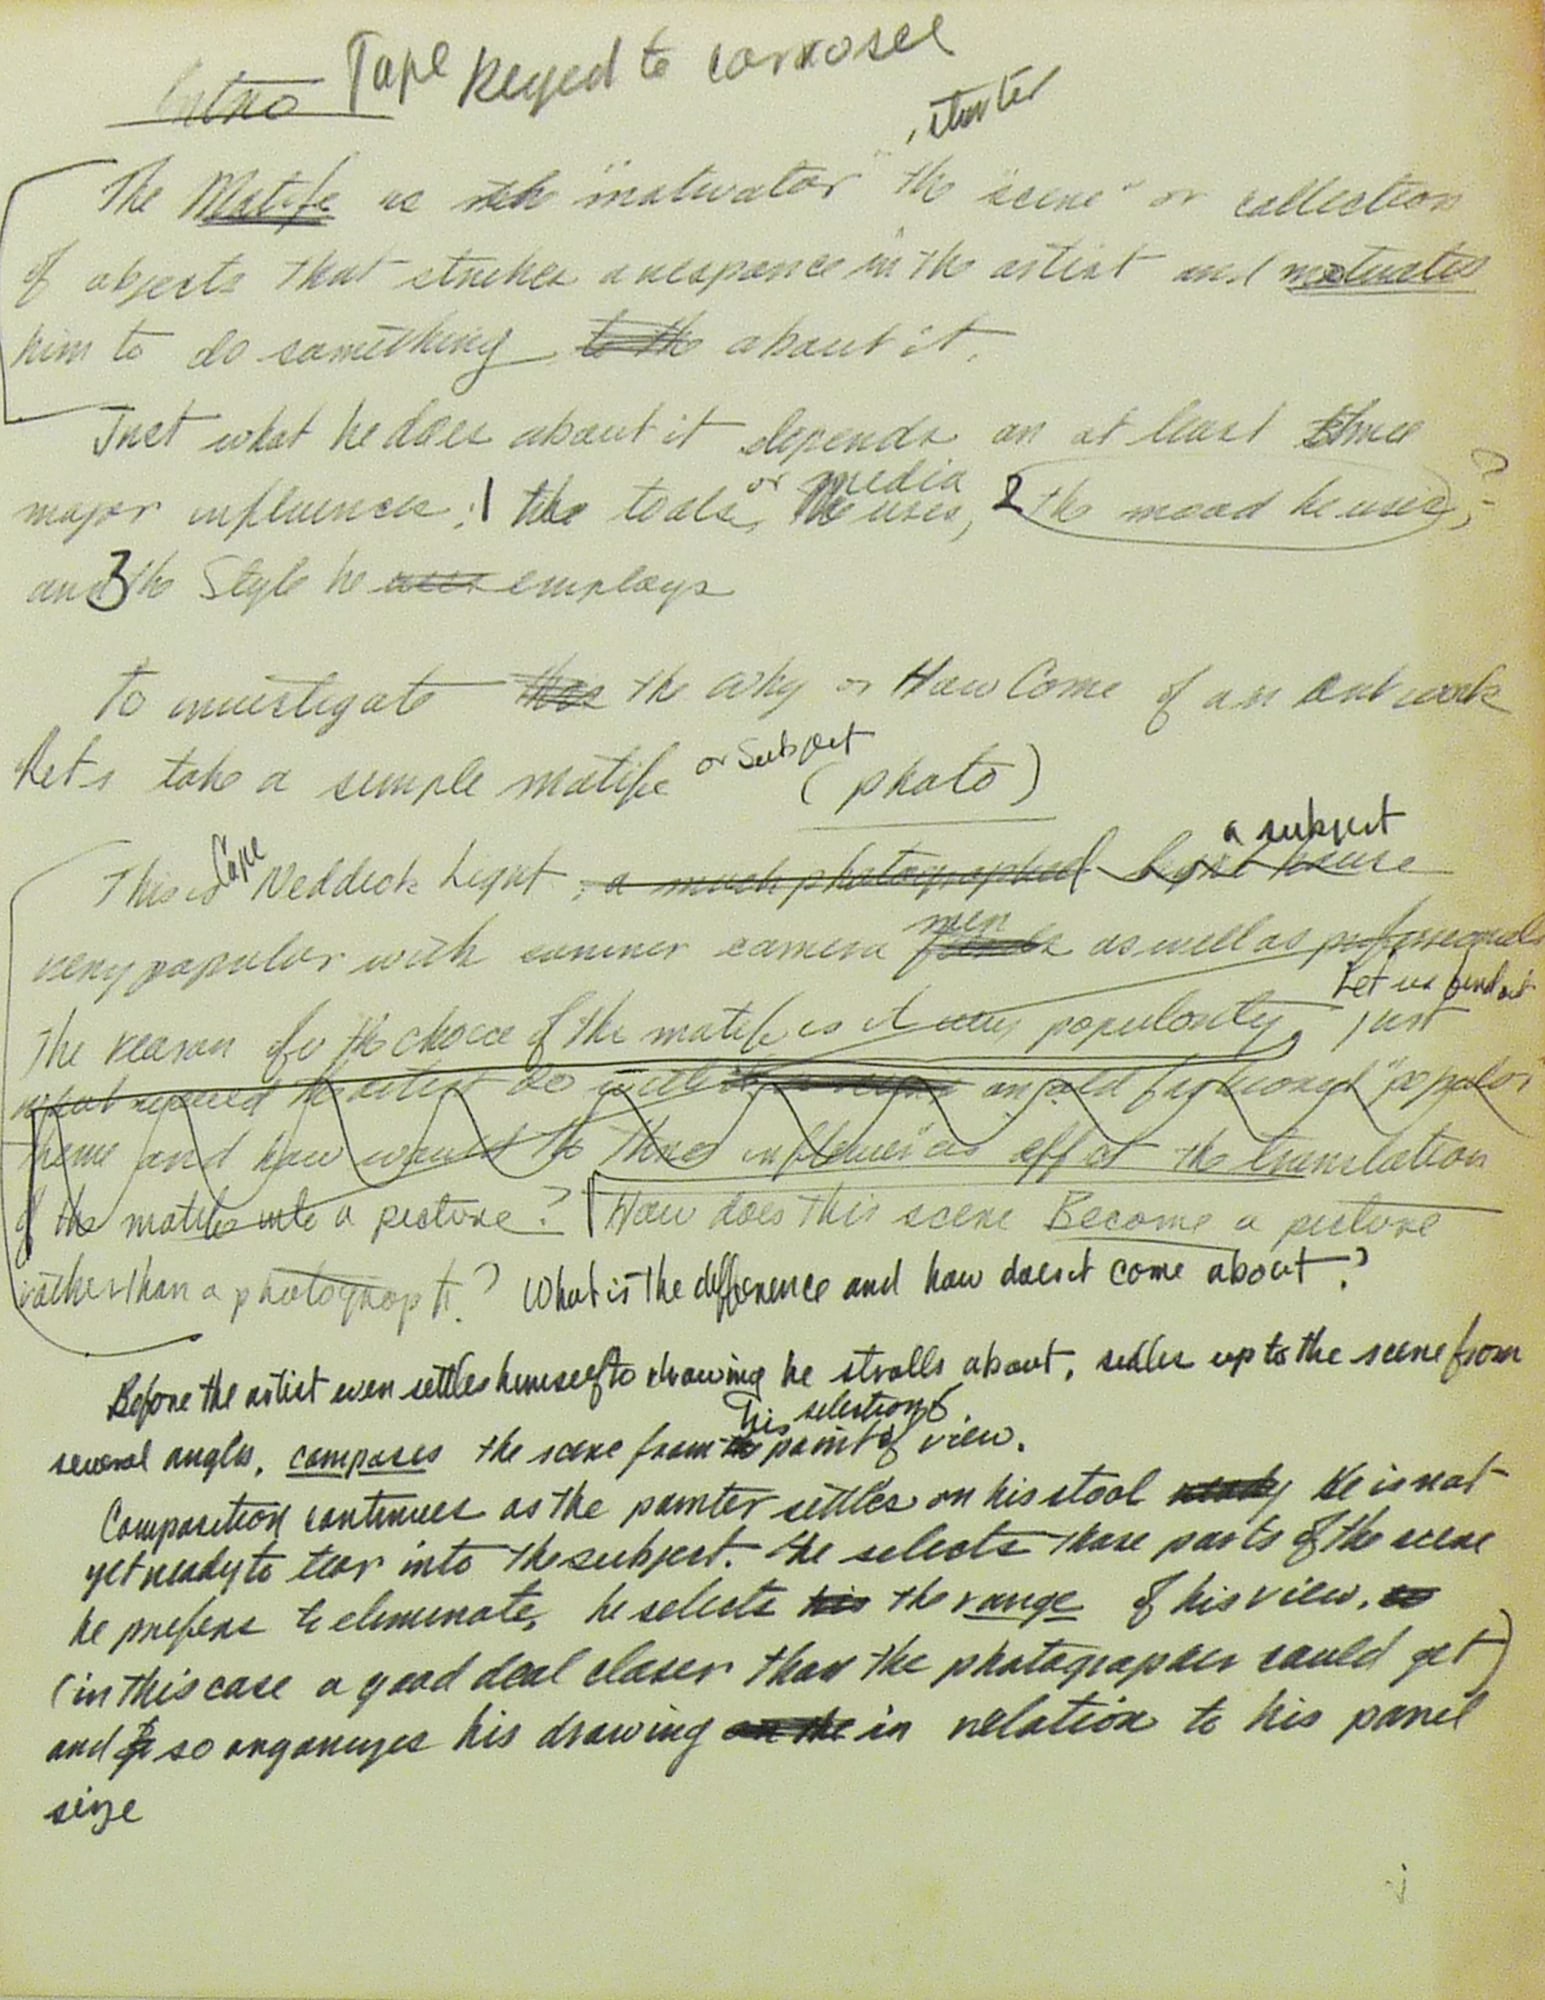 Intro Tape keyed to carrosel
, starter
The Motife is the "motivator" the "scene" or collection
of objects that strikes a responance in the artist and motivates
him to do something to the about it.
Just what he does about it depends on at least three
or media
major influences: 1 the tools, he uses, 2 the mood he uses, ?
and 3 the Style he uses employs
To investigate the why or How Come of an art work
or Subject
Lets take a simple motife (photo)
a subject
This is Cape Neddick Light, a much photographed light house
men
very popular with summer camera as well as professionals
Let us find out
The reason for the choice of the motife is it very popularity, just
what would the artist do with an old fashioned "popular"
theme and how would the three influences effect the translation
of the motife into a picture? How does this scene Become a picture
rather than a photograph? What is the difference and how does it come about?
Before the artist even settles himself to drawing he strolls about, sidles up to the scene from
his selection of
several angles, composes the scene from the point of view.
Composition continues as the painter settles on his stool ready He is not
yet ready to tear into the subject. He selects those parts of the scene
he prefers to eliminate, he selects his the range of his view, so
(in this case a good deal closer than the photographer could get)
and so organizes his drawing on the in relation to his panel
size